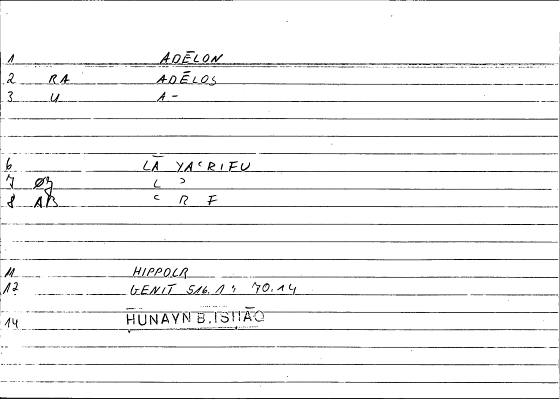 1 ADĒLON
2 RA ADĒLOS
3 U A-
6 LĀ YAʿRIFU
7 ØZ L ʾ
8 AB ʿ R F
11 HIPPOLR
12 GENIT 516.1 ; 70.14
14 HUNAYN B. ISHĀQ